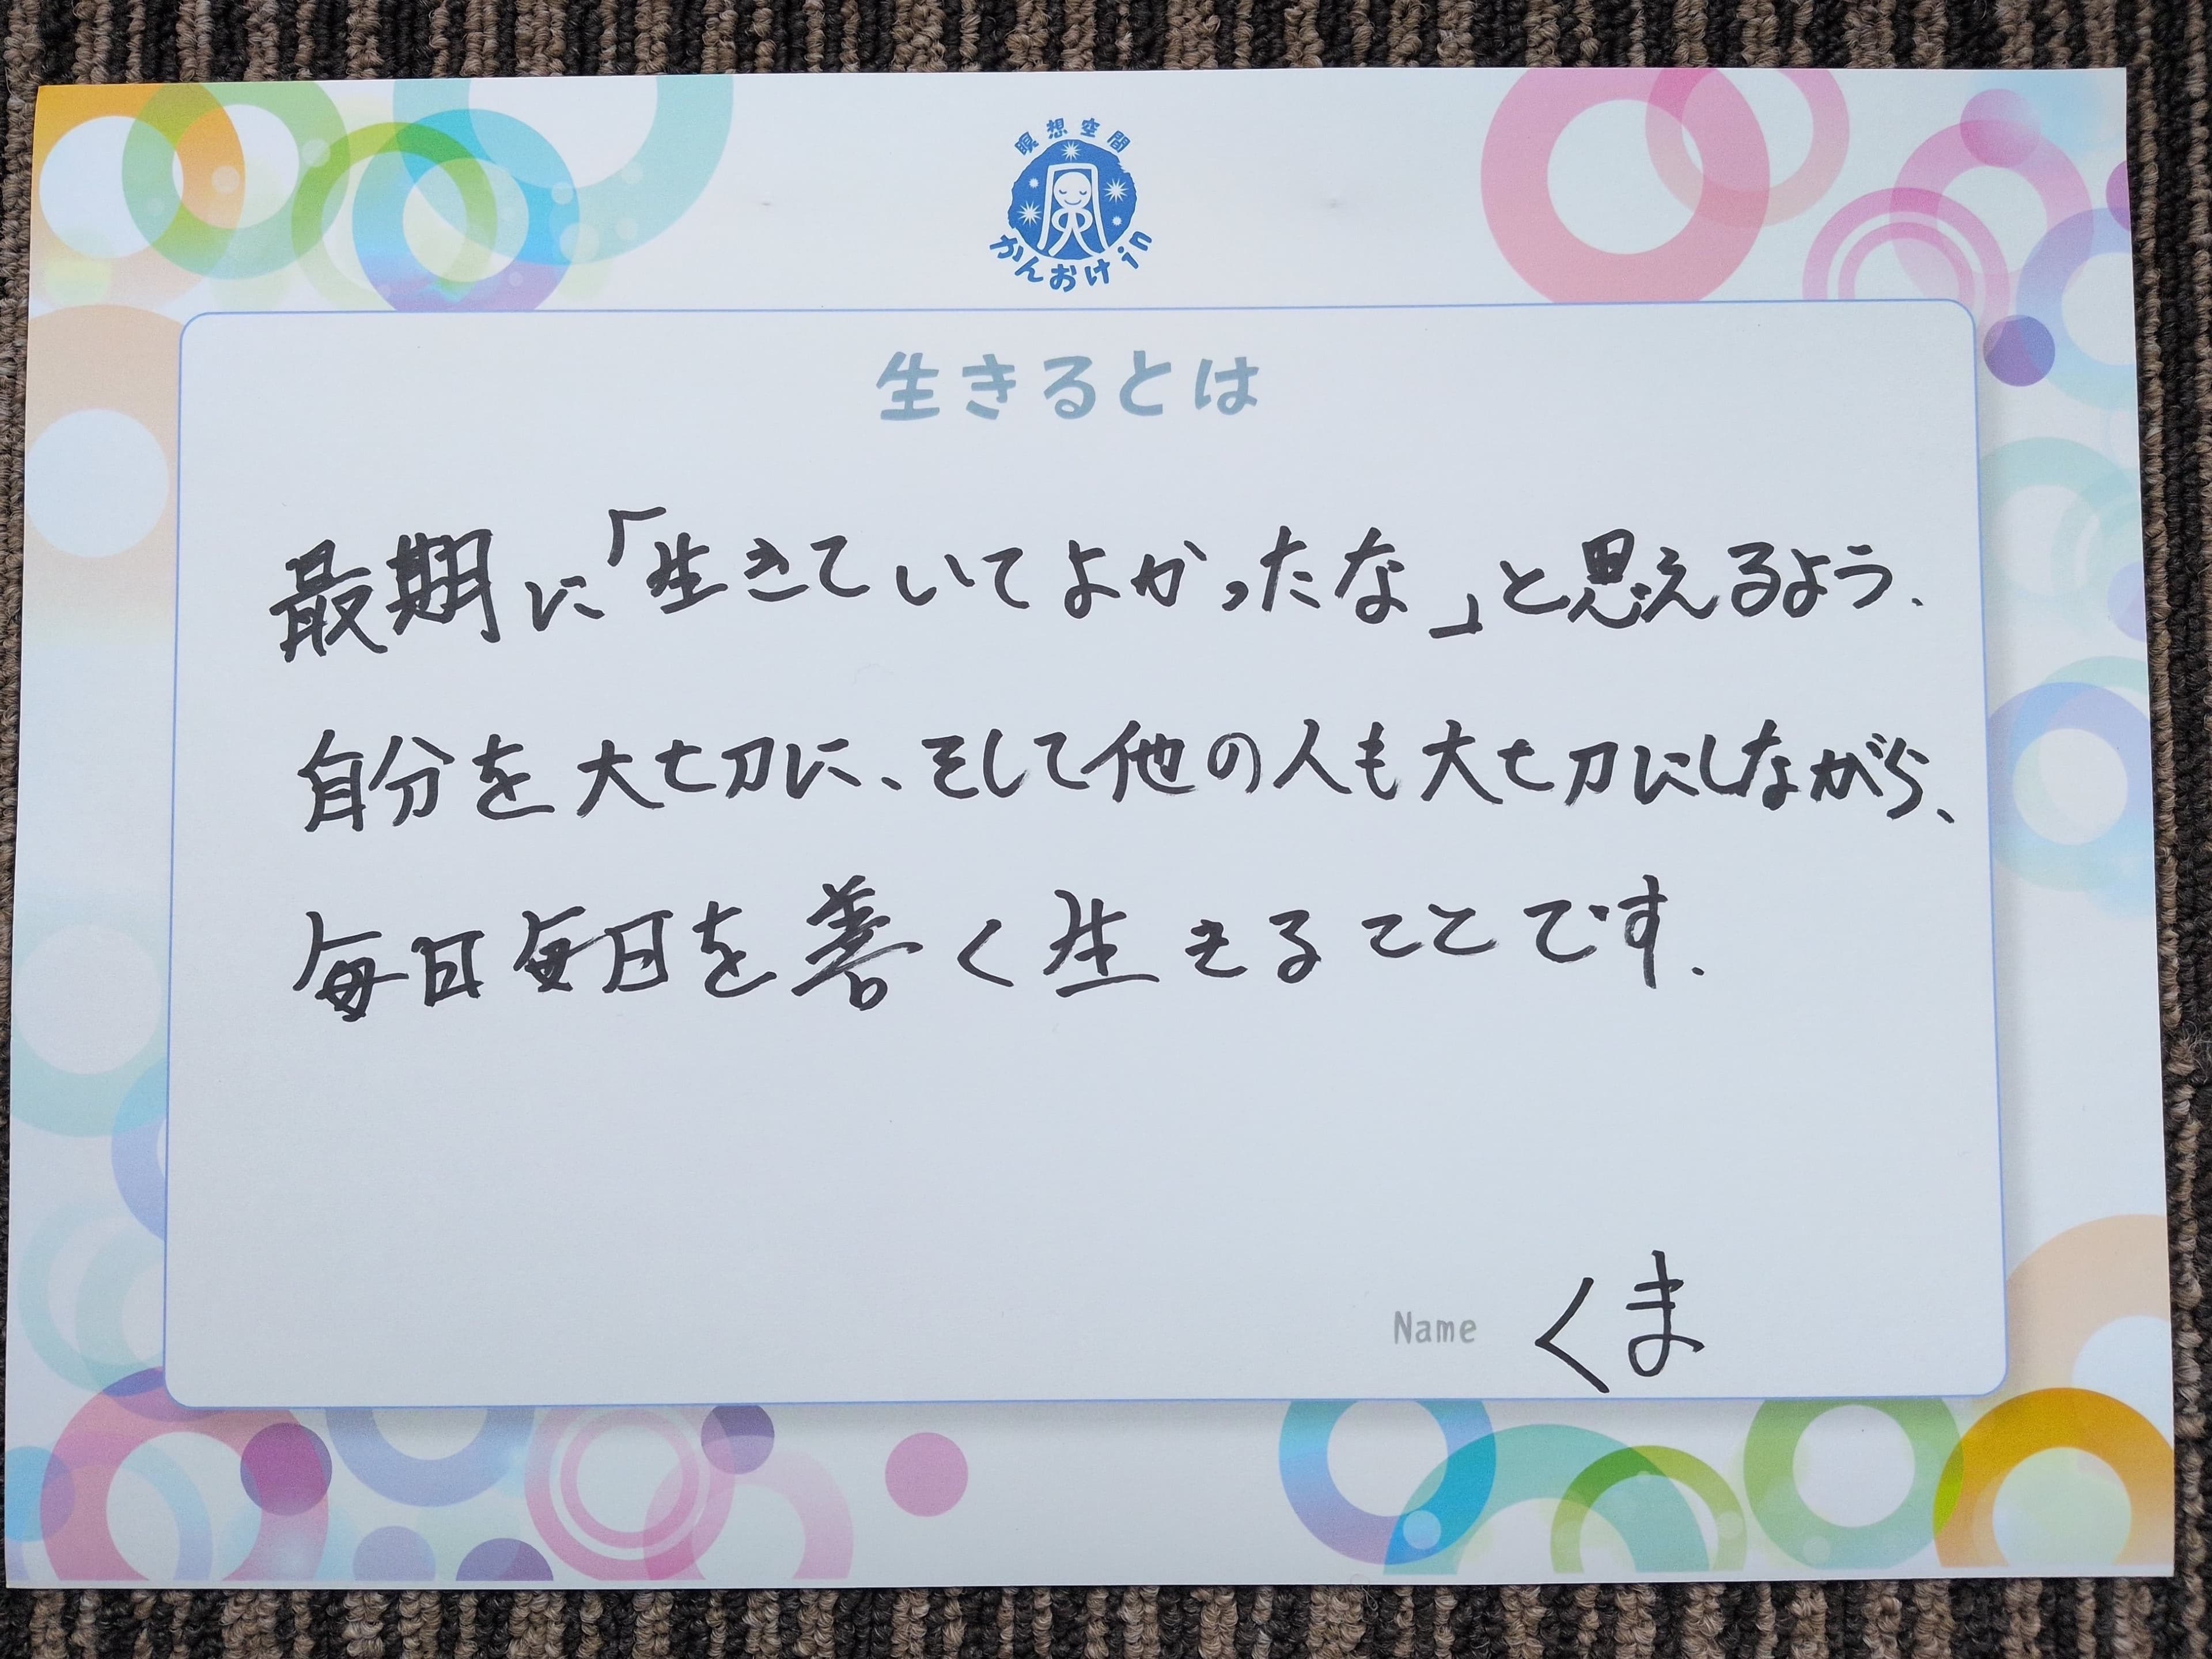 瞑想空間
かんおけin
生きるとは
最期に「生きていてよかったな」と思えるよう、
自分を大切に、そして他の人も大切にしながら、
毎日毎日を善く生きることです.
Name くま